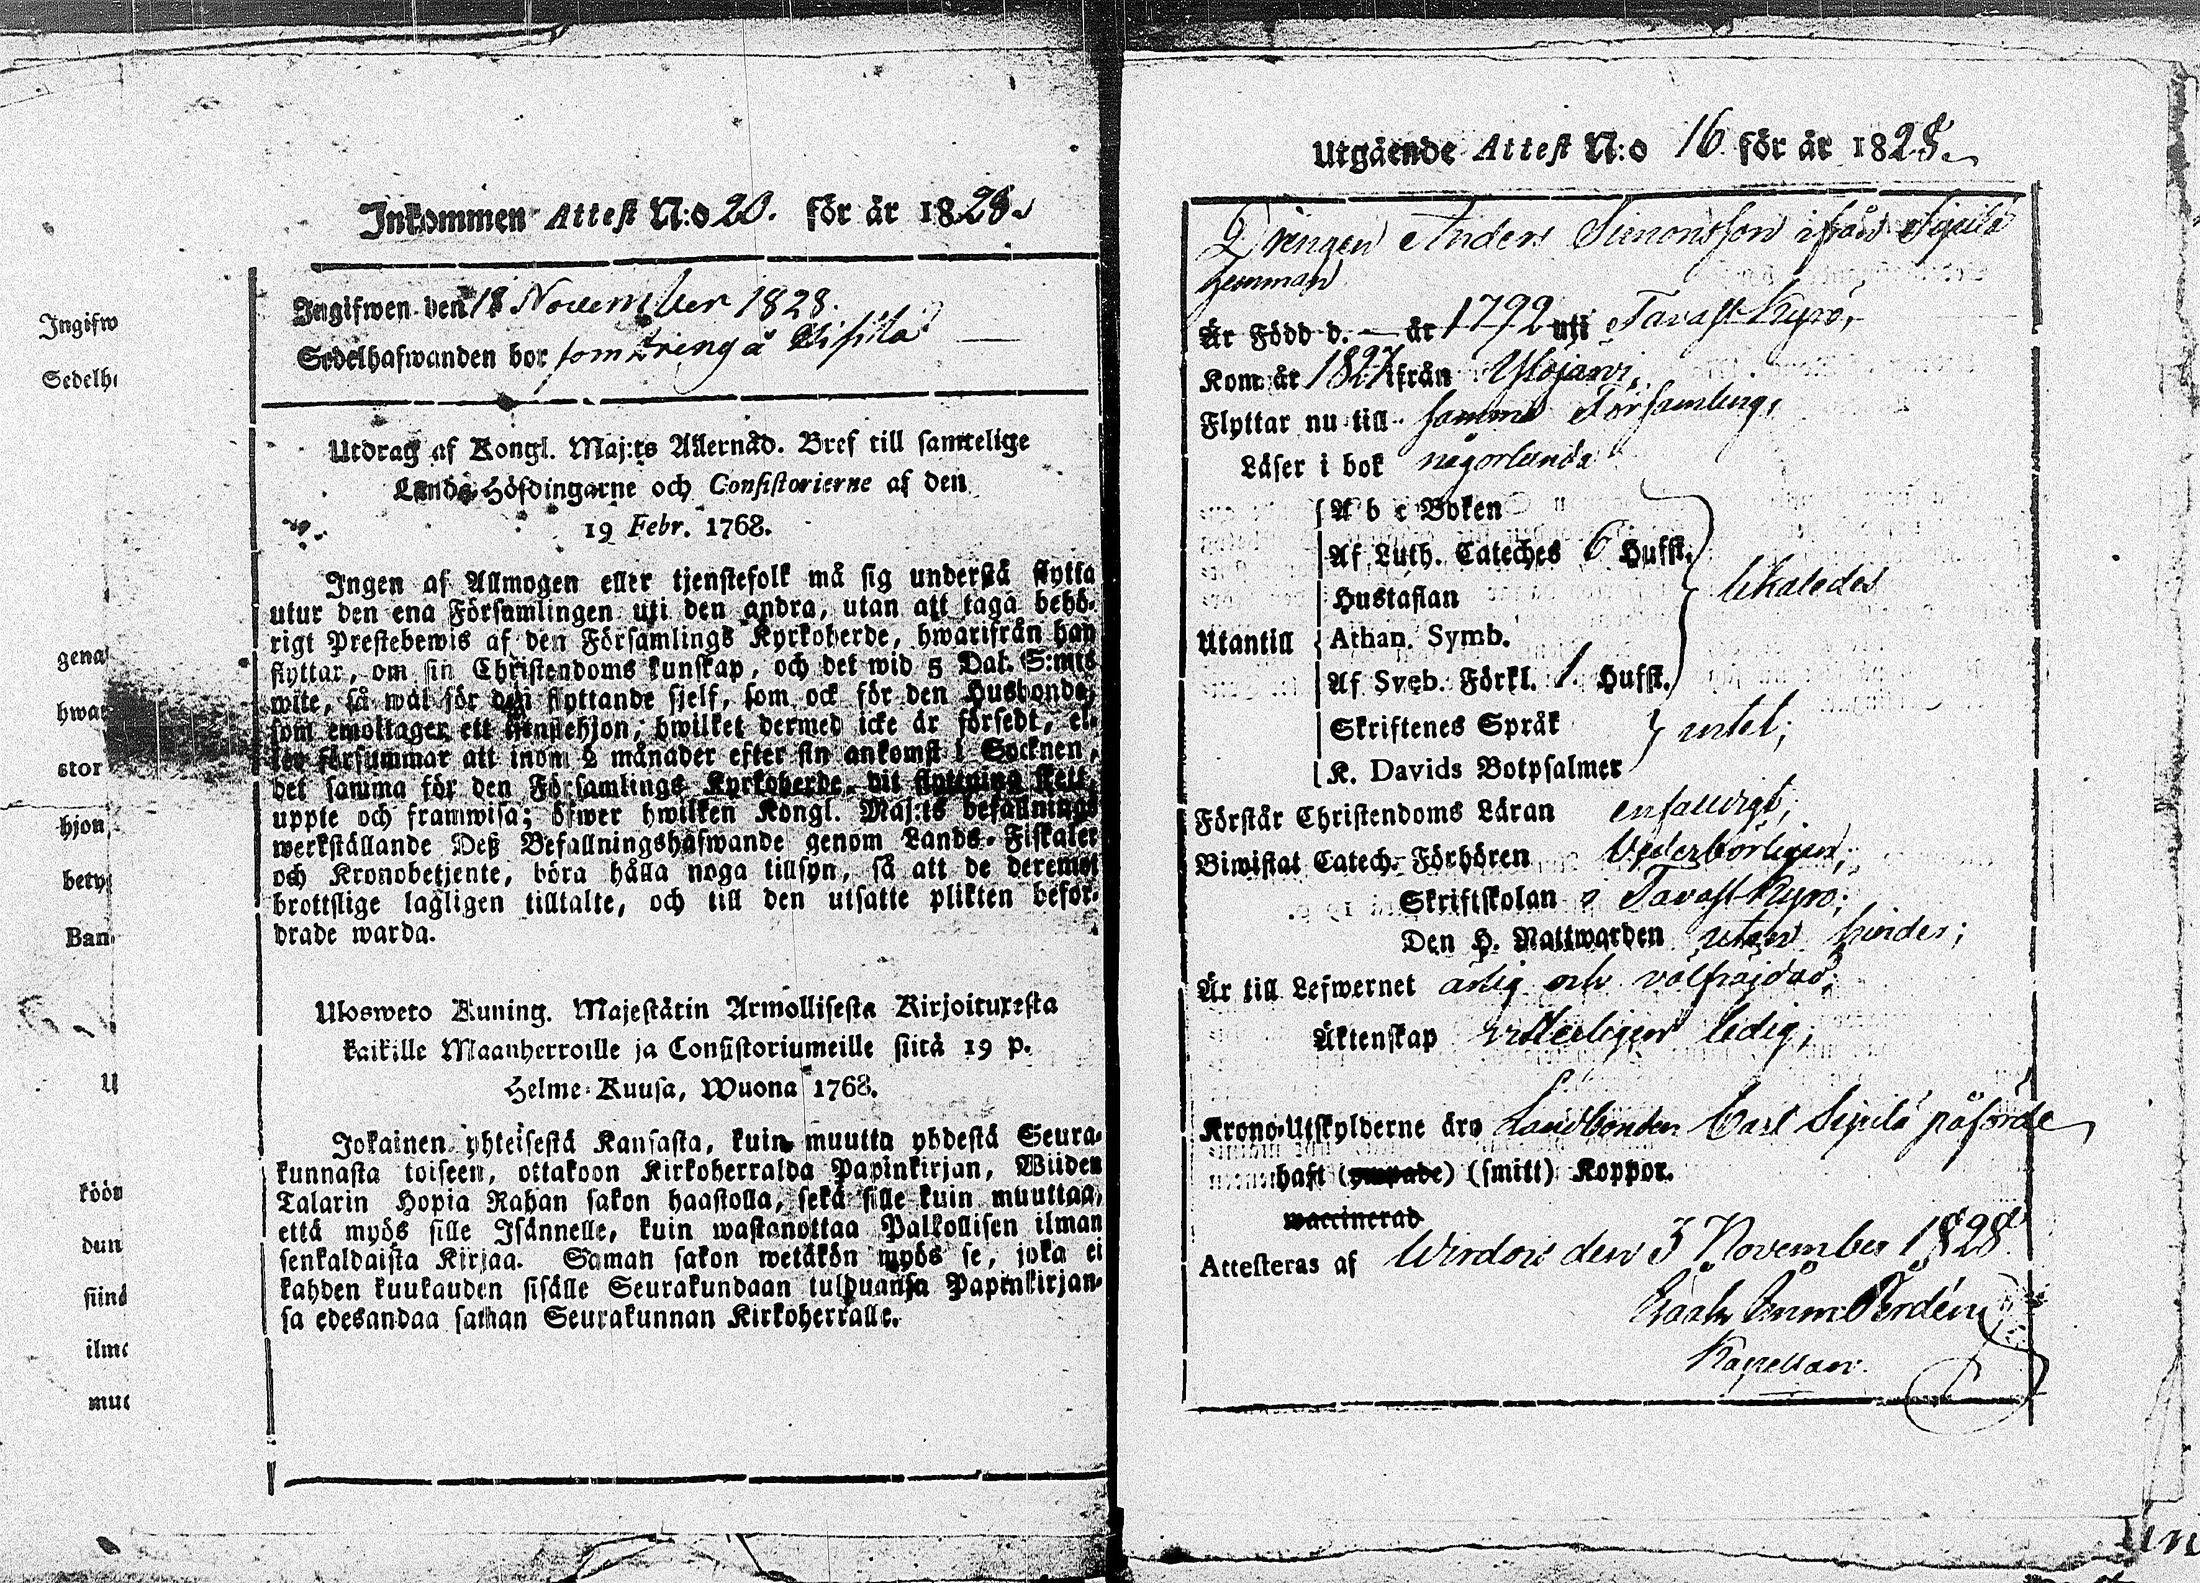 Inkommen Attest N:o 20. för år 1828.
Ingifwen den 18 November 1828.
Sedelhafwanden bor som dräng å
Utdrag af Kongl. Maj:ts Allernåd. Bref till samtelige
Lands-Höfdingarne och Consistorierne af den
19 Febr. 1768.
Ingen af Allmogen eller tjenstefolk må sig understå flytta
utur den ena Församlingen uti den andra, utan att taga behö-
rigt Prestebewis af den Församlings Kyrkoherde, hwarifrån han
flyttar, om sin Christendoms kunskap, och det wid 5 Dal. S:mts
wite, så wäl för den flyttande sjelf, som ock för den Husbonde,
som emottager ett tjenstehjon, hwilket dermed icke är försedt, el-
ler försummar att inom 2 månader efter sin ankomst i Socknen,
det samma för den Församlings Kyrkoherde, dit flyttning skett,
uppte och framwisa; öfwer hwilken Kongl. Maj:ts befallnings
werkställande Deß Befallningshafwande genom Lands-Fiskaler
och Kronobetjente, böra hålla noga tillsyn, så att de deremot
brottslige lagligen tilltalte, och till den utsatte plikten befor-
drade warda.
Ulosweto Kuning. Majestätin Armollisesta Kirjoituxesta
kaikille Maanherroille ja Consistoriumeille siitä 19 p.
Helme-Kuusa, Wuona 1768.
Jokainen yhteisestä Kansasta, kuin muutta yhdestä Seura-
kunnasta toiseen, ottakoon Kirkoherralda Papinkirjan, Wiiden
Talarin Hopia Rahan sakon haastolla, sekä sille kuin muuttaa,
että myös sille Isännelle, kuin wastanottaa Palkollisen ilman
senkaldaista Kirjaa. Saman sakon wetäkön myös se, joka ei
kahden kuukauden sisälle Seurakundaan tulduansa Papinkirjan-
sa edesandaa sathan Seurakunnan Kirkoherralle.
Ingifw
Sedelh
gena
hwar
stor
hjon,
bety
Ban
U
köön
dun
siind
ilma
muu
Utgående Attest N:o 16 för år 1828.
Drengen Anders Simonsson ifrån Sipilä
hemman
Är Född d. — år 1792 uti Tavastkyrö,
Kom år 1827 ifrån Ylöjärvi,
Flyttar nu till samma Församling,
Läser i bok någorlunda
A b c Boken
Af Luth. Cateches 6 Hufst.
Hustaflan
likaledes
Utantill
Athan. Symb.
Af Sveb. Förkl. 1. Hufst.
Skriftenes Språk
intet;
K. Davids Botpsalmer
Förstår Christendoms Läran enfaldigt;
Biwistat Catech. Förhören Vederbörligen;
Skriftskolan i Tavastkyrö;
Den H. Nattwarden utan hinder;
Är till Lefwernet ärlig och välfräjdad;
Äktenskap vitterligen ledig;
Krono-Utskylderne äro Landbonden Carl Sipilä påförde
haft (ympade) (smitt) Koppor.
waccinerad
Attesteras af Wirdois den 3 November 1828.
Kapellan.